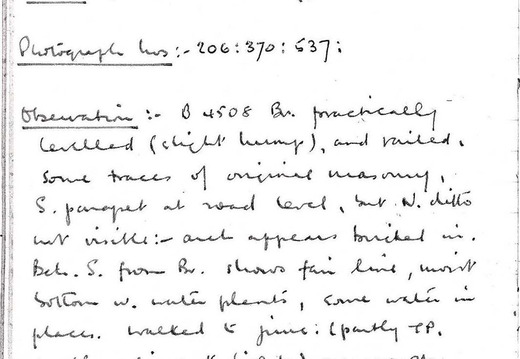 Photograph Nos:- 206: 370: 537:
Observation :- B 4508 Br. practically
levelled (slight hump), and railed.
Some traces of original masonry,
S. parapet at road level, but N. ditto
not visible:- arch appears bricked in.
S. from Br. shows fair line, moist
bottom w. water plants, some water in
places. Walked to junc: (partly TP.